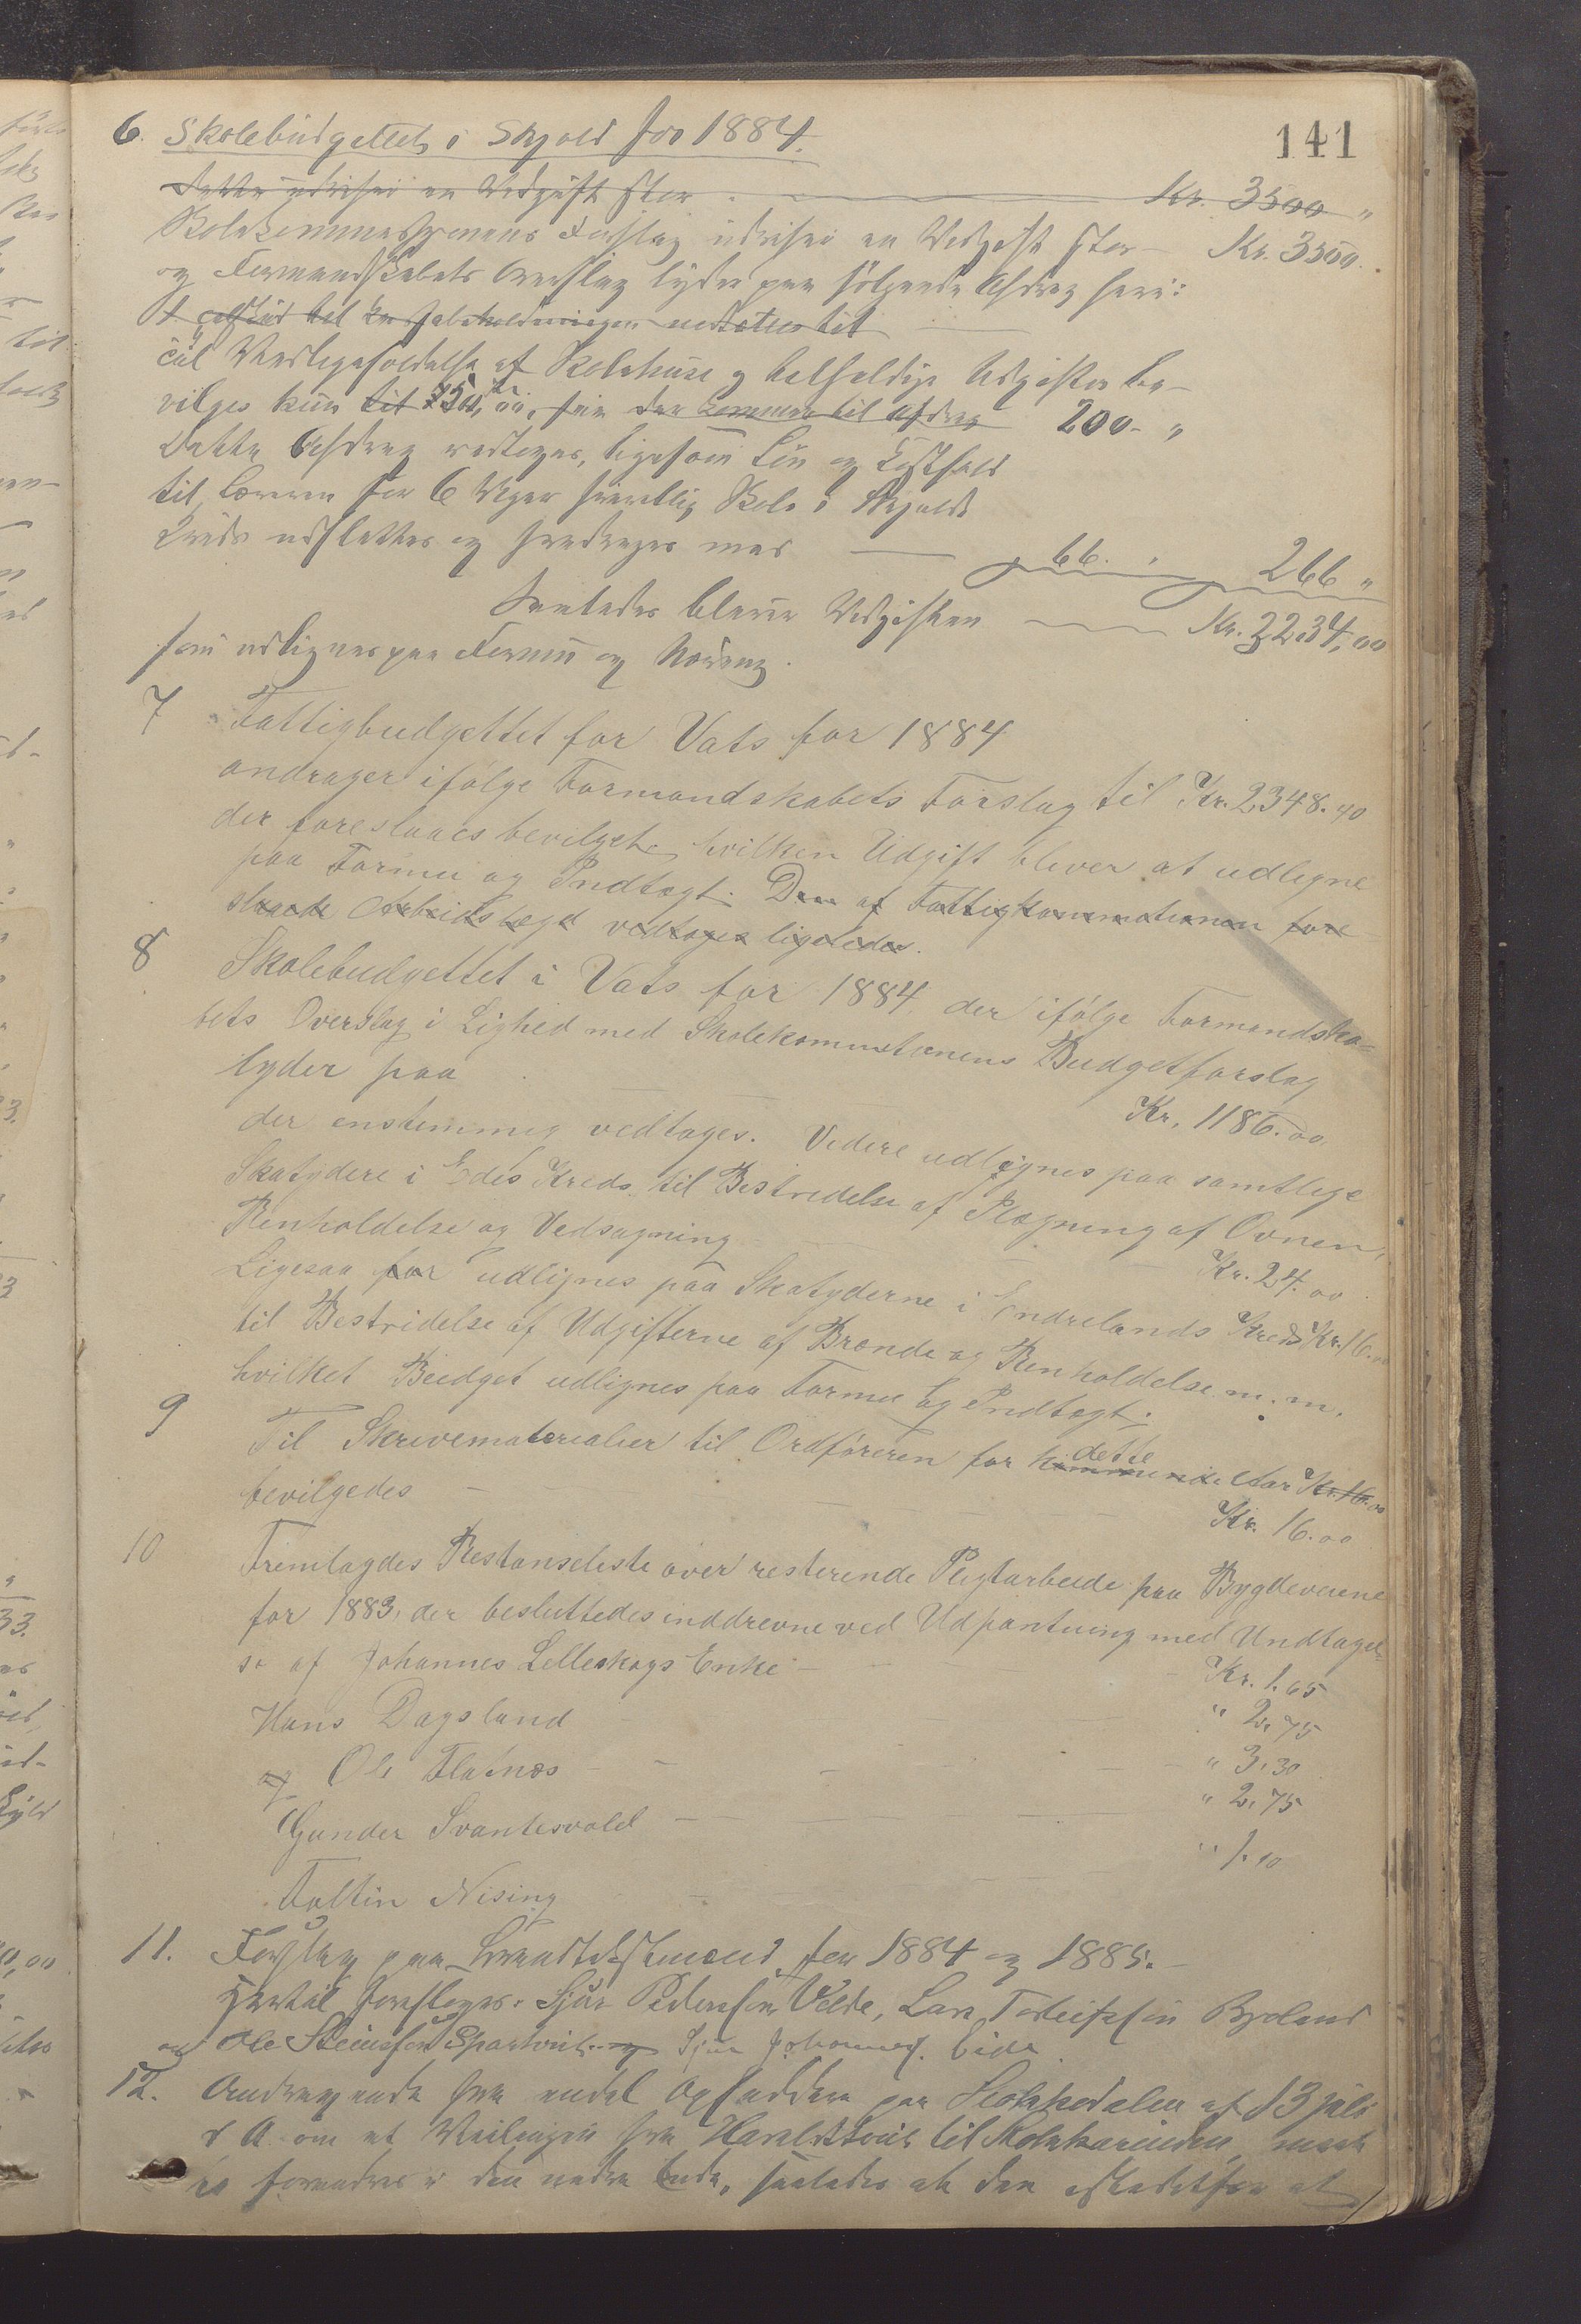 141
6. Skolebudgettet i Skjold for 1884.
Dette udviser en Udgift stor Kr. 3500 "
Skolekommissionens Forslag udviser en Udgift stor - Kr. 3500.
og Formandskabets Overslag lyder paa følgende Afdrag heri:
til
Til Vedligeholdelse af Skolehuse og tilfeldige Udgifter be-
vilges kun til 150,00, som der kommer til Afdrag 200 - "
Dette Afdrag vedtoges, ligesom Løn og Kosthold
til Læreren for 6 Uger frivillig Skole i Skjolds
Kreds udslettes og fradrages med 66. " 266 "
Saaledes bliver Udgiften Kr. 3234,00
som udlignes paa Formue og Næring.
7 Fattigbudgettet for Vats for 1884
andrager ifølge Formandskabets Forslag til Kr. 2348.40
der foreslaaes bevilget, hvilken Udgift bliver at udligne
paa Formue og Indtægt. Den af Fattigkommissionen fore
slaaede Arbeidslægd vedtages ligeledes.
8 Skolebudgettet i Vats for 1884 der ifølge Formandska-
bets Overslag i Lighed med Skolekommissionens Budgetforslag
lyder paa Kr. 1186.00
der enstemmig vedtages. Videre udlignes paa samtlige
Skatydere i Eides Kreds til Bestridelse af Lægning af Ovnen,
Renholdelse og Vedsagning Kr. 24.00
Ligesaa for udlignes paa Skatyderne i Endrelands Kreds Kr. 16.00
til Bestridelse af Udgifterne af Brænde og Renholdelse m. m.
hvilket Budget udlignes paa Formue og Indtægt.
9 Til Skrivematerialier til Ordføreren for dette Aar Kr. 16.00
bevilgedes - Kr. 16.00
10 Fremlagdes Restanseliste over resterende Pligtarbeide paa Bygdeveiene
for 1883, der besluttedes inddrevne ved Udpantning med Undtagel-
se af Johannes Lilleskogs Enke - Kr. 1.65
Hans Dagsland " 2,75
og Ole Flatnæs - " 3,30
Gunder Svantesvold - " 2,75
Toltin Nising " 1.10
11. Forslag paa for 1884 og 1885. -
Hertil foresloges: Sjur Pedersen Velde, Lars Torleifsen Byoland
og Ole Steinsson Espartveit og Sjur Johannes. Eide
12. Andragende fra endel Opsiddere paa Stokkedalen af 13 juli
d. A. om at Veilinjen fra Haraldstveit til maat-
te forandres i den nedre Ende, saaledes at den istedetfor at